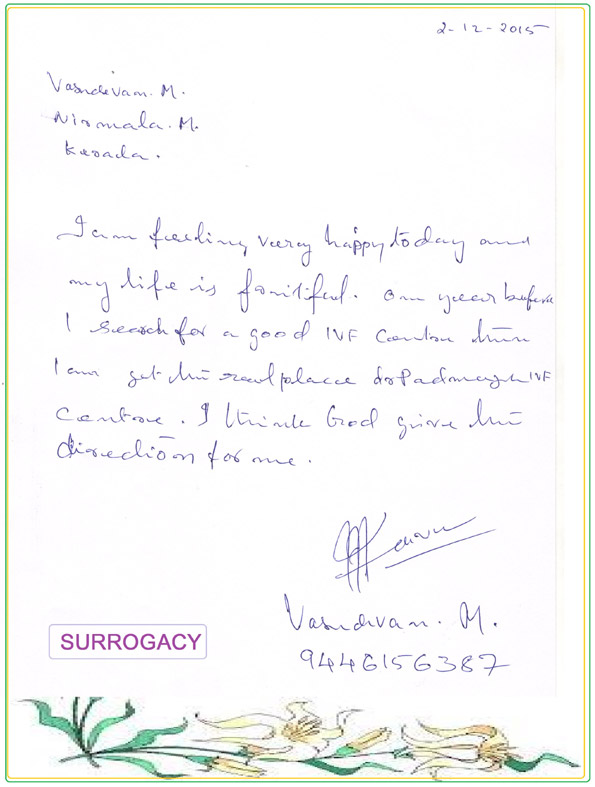 2-12-2015
Vasudevan. M.
Nirmala. M.
Kerada.
I am feeling veery happy today and
my life is foritiful. On year before
I search for a good IVF Centre then
I am get the real palace
Centore. I think God give the
direction for me.
Vasudevan. M.
9446156387
SURROGACY